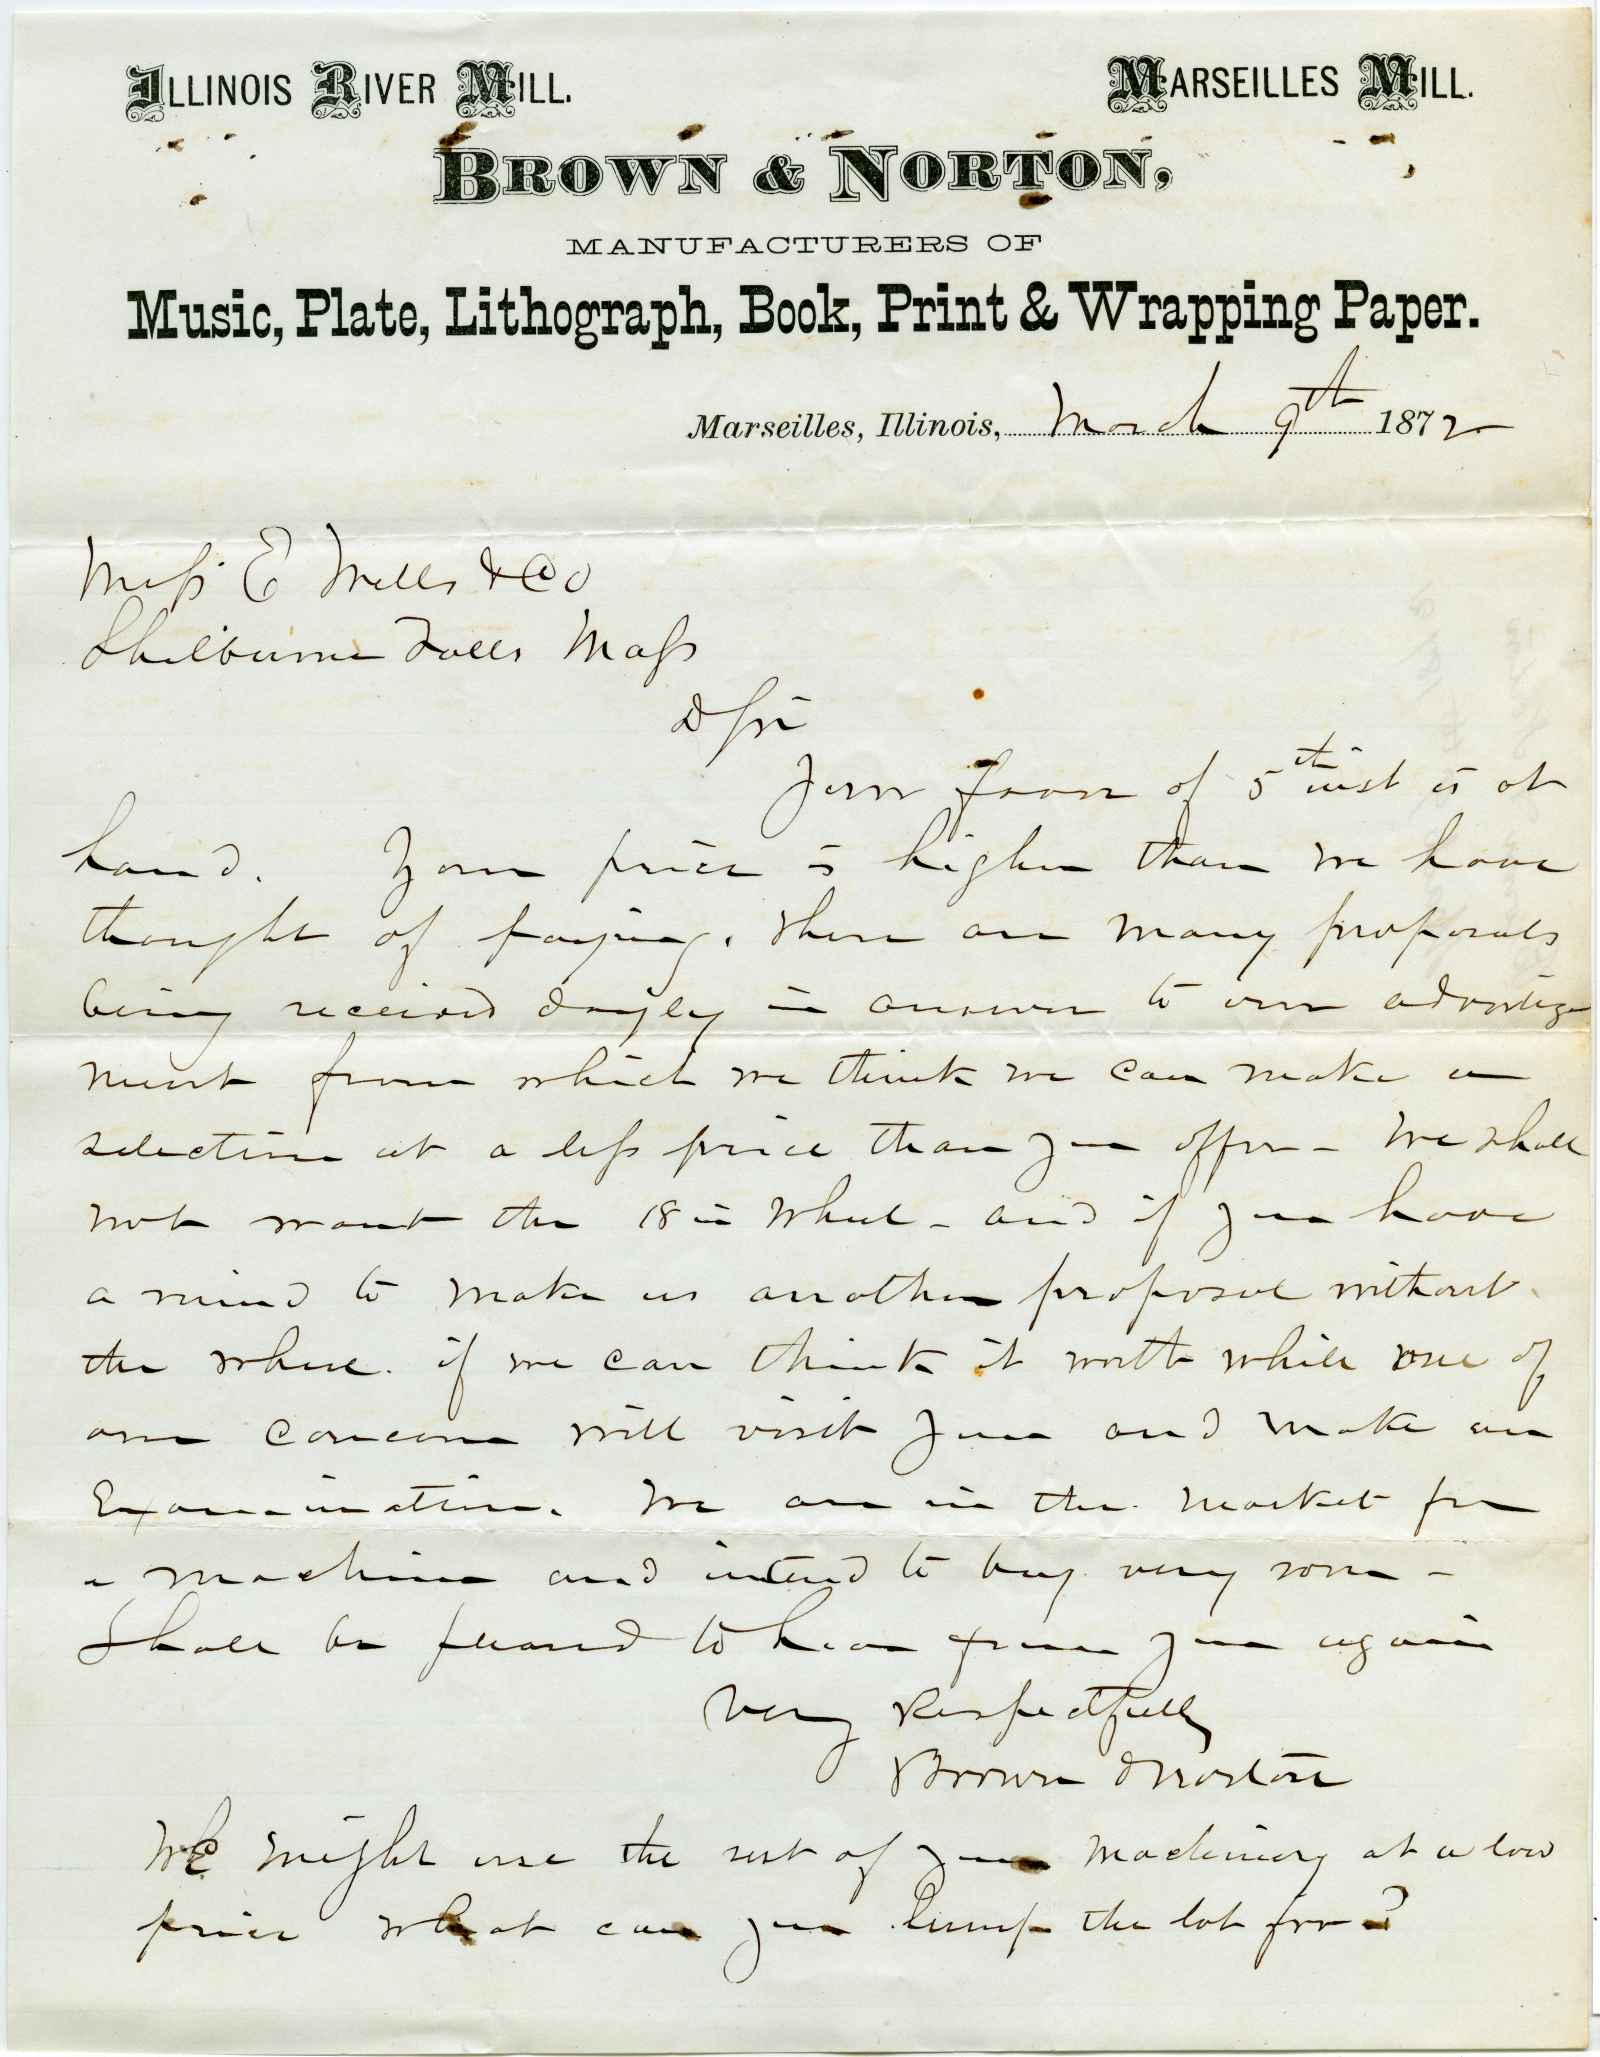 ILLINOIS RIVER MILL. MARSEILLES MILL.
BROWN & NORTON,
MANUFACTURERS OF
Music, Plate, Lithograph, Book, Print & Wrapping Paper.
Marseilles, Illinois, March 9th 1872
Mess E Mills & Co
Shelburne Falls Mass
D Sir
Your favor of 5th inst is at
hand. Your price is higher than we have
thought of paying. There are many proposals
being received dayley in answer to our advertize
ment from which we think we can make a
selection at a less price than you offer - We shall
not want the 18 in Wheel - and if you have
a mind to make us another proposal without
the wheel. if we can think it worth while one of
our concern will visit you and make an
Examination. We are in the market for
a machine and intend to buy very soon -
Shall be pleased to hear from you again
Very Respectfully
Brown & Norton
We might use the rest of your Machinery at a low
price what can you lump the lot for?